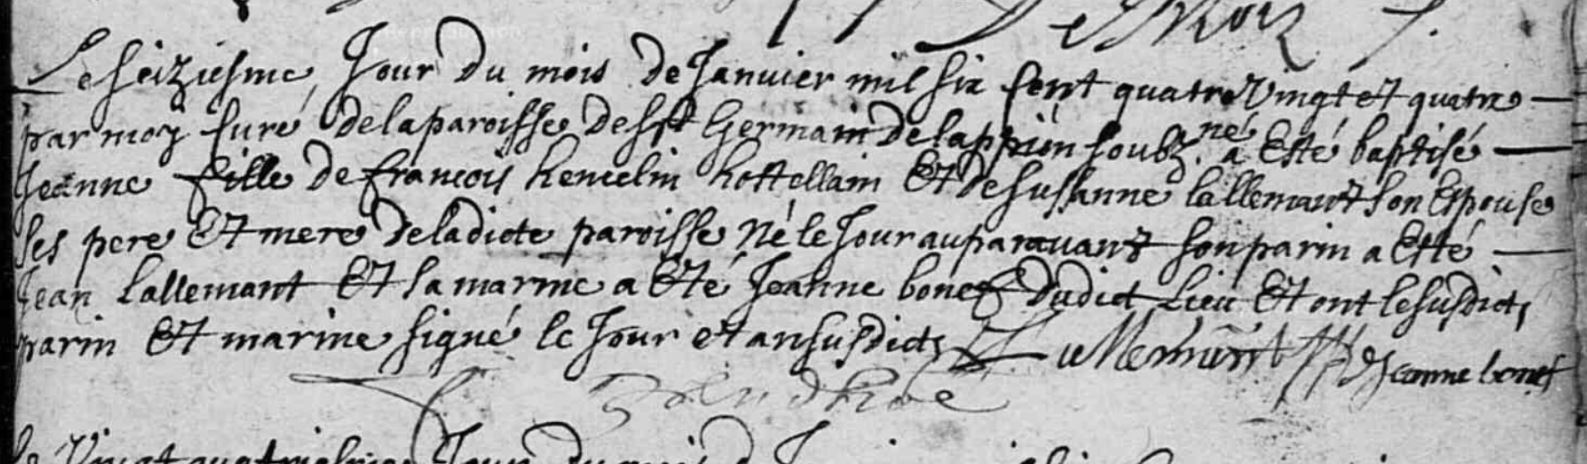 Le seiziesme Jour du mois de Janvier mil six sent quatre vingt et quatre
par moy curé de la paroisse de st Germain soubz.né a Esté baptisé
Jeanne fille de francois hencelin hottellain Et de sussanne lallemant son Espouse
ses pere Et mere de ladicte paroisse Né le Jour auparavant son parin a Etté
Jean Lallemant Et sa marine a Eté Jeanne bonet dudict Lieu Et ont lesusdicts
parin Et marine signé le Jour et an susdicts Jeanne bonet